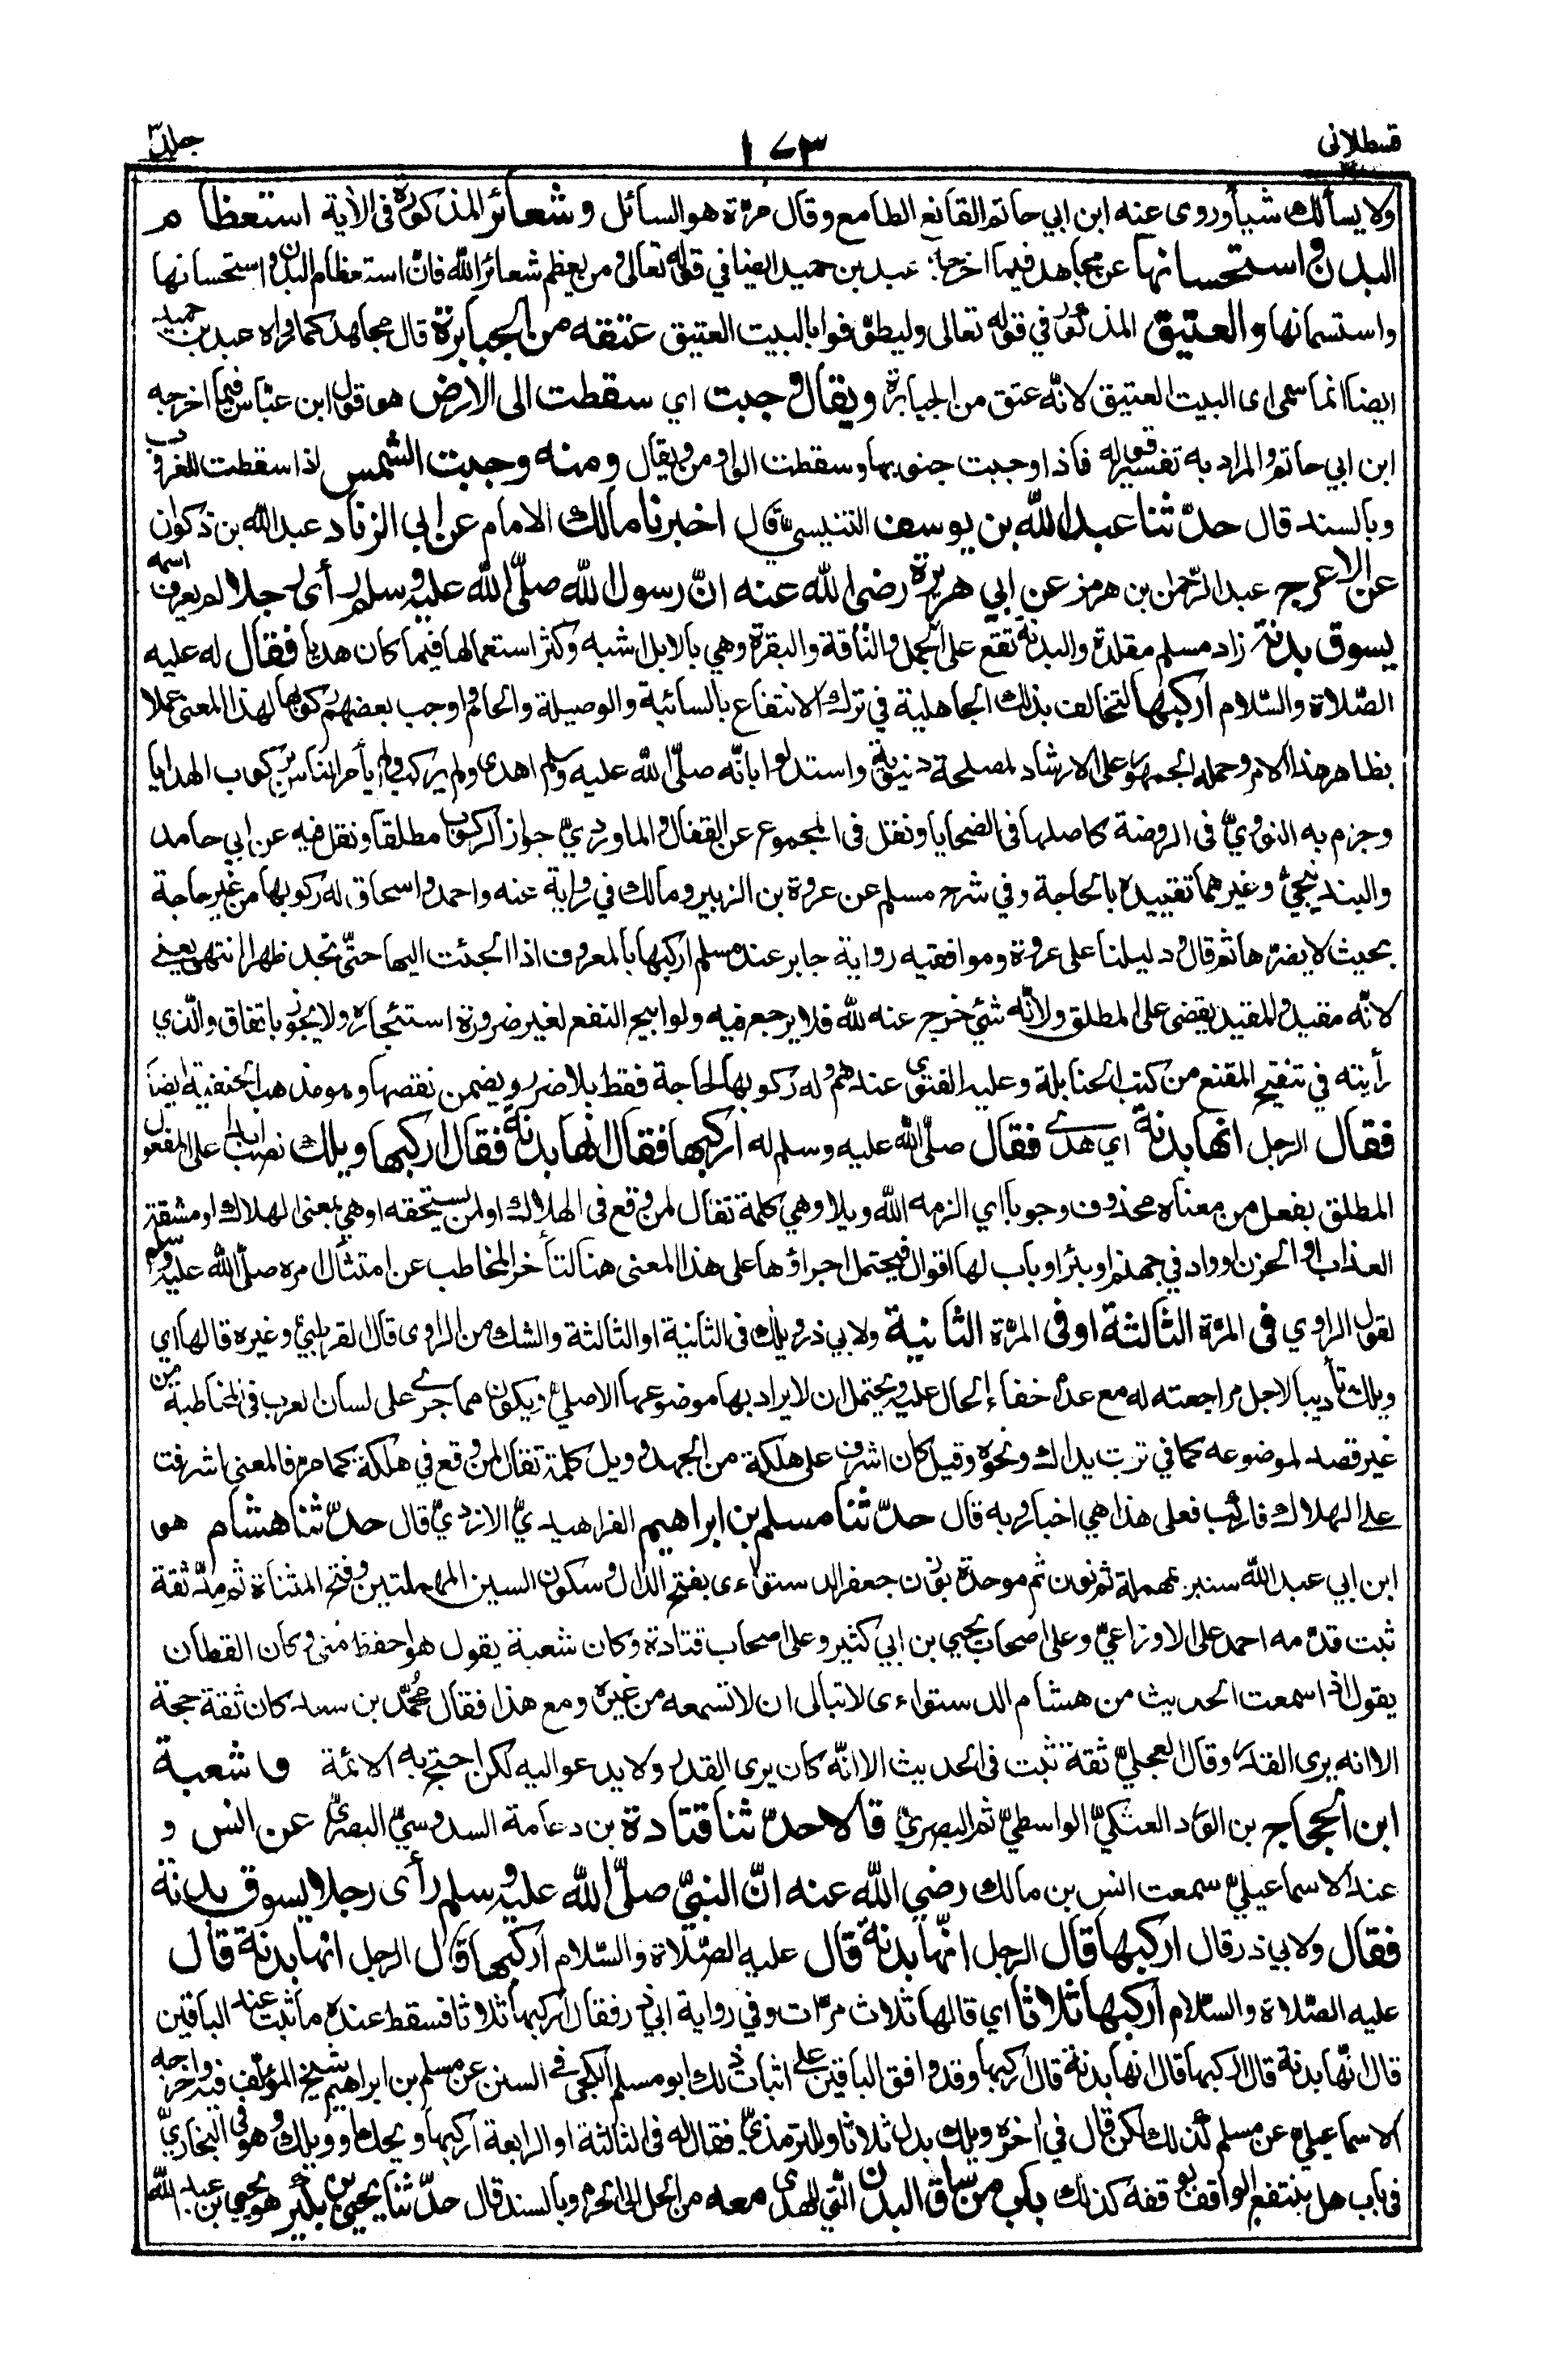 قسطلاني
١٧٣
جلد ٣
ولا يسألك شيأ وروى عنه ابن ابي حاتم القانع الطامع وقال مرّة هو السائل وشعائر المذكورة فى الأية استعظام
البدن واستحسانها عن مجاهد فيما اخرجه عبد بن حميد ايضا في قوله تعالى ومن يعظم شعائر الله فانّ استعظام البدن واستحسانها
واستسمانها والعتيق المذكور في قوله تعالى وليطوّفوا بالبيت العتيق عتقه من الجبابرة قال مجاهد كما رواه عبد بن حميد
ايضا انما سمى اى البيت العتيق لانّه عتق من الجبابرة ويقال وجبت اي سقطت الى الارض هو قول ابن عبّاس فيما اخرجه
ابن ابي حاتم والمراد به تفسير قوله فاذا وجبت جنوبها وسقطت الواو من ويقال ومنه وجبت الشمس اذا سقطت للغروب
وبالسند قال حدّثنا عبد الله بن يوسف التنيسيّ قال اخبرنا مالك الامام عن ابي الزناد عبد الله بن ذكوان
عن الاعرج عبد الرّحمن بن هرمز عن ابي هريرة رضى الله عنه انّ رسول الله صلّى الله عليه وسلم رأى رجلا لم يعرف اسمه
يسوق بدنة زاد مسلم مقلدة والبدنة تقع على الجمل والناقة والبقرة وهي بالابل اشبه وكثر استعمالها فيما كان هديا فقال له عليه
الصّلاة والسّلام اركبها لتخالف بذلك الجاهلية في ترك الانتفاع بالسائبة والوصيلة والحام واوجب بعضهم ركوبها لهذا المعنى عملا
بظاهر هذا الامر وحمله الجمهور على الارشاد لمصلحة دنيوية واستدلوا بانّه صلّى الله عليه وسلم اهدى ولم يركب ولم يأمر الناس بركوب الهدايا
وجزم به النوويّ فى الروضة كاصلها فى الضحايا ونقل فى المجموع عن القفال والماورديّ جواز الركوب مطلقا ونقل فيه عن ابي حامد
والبندنيجيّ وغيرهما تقييده بالحاجة وفي شرح مسلم عن عروة بن الزبير ومالك في رواية عنه واحمد واسحاق له ركوبها من غير حاجة
بحيث لا يضرّها ثم قال ودليلنا على عروة وموافقيه رواية جابر عند مسلم اركبها بالمعروف اذا الجئت اليها حتّى تجد ظهرا انتهى يعني
لانّه مقيد والمقيد يقضى على المطلق ولأنّه شئ خرج عنه لله فلا يرجع فيه ولو ابيح النفع لغير ضرورة استئجاره ولا يجوز باتفاق والّذي
رأيته في تنقيح المقنع من كتب الحنابلة وعليه الفتوى عندهم وله ركوبها لحاجة فقط بلا ضرر ويضمن نقصها وهو مذهب الحنفية ايضا
فقال الرجل انها بدنة اي هدى فقال صلّى الله عليه وسلم له اركبها فقال انها بدنة فقال اركبها ويلك نصب ابدا على المفعول
المطلق بفعل من معناه محذوف وجوبا اي الزمه الله ويلا وهي كلمة تقال لمن وقع فى الهلاك او لمن يستحقه او هي بمعنى الهلاك او مشقة
العذاب او الحزن او واد في جهنم او بئر او باب لها اقوال فيحتمل اجراؤها على هذا المعنى هنا لتأخر المخاطب عن امتثال امره صلّى الله عليه وسلم
لقول الراوي فى المرّة الثالثة او فى المرّة الثانية ولابي ذر ويلك فى الثانية او الثالثة والشك من الراوى قال القرطبيّ وغيره قالها اي
ويلك تأديبا لاجل مراجعته له مع عدم خفاء الحال عليه ويحتمل ان لا يراد بها موضوعها الاصليّ ويكون مما جرى على لسان العرب فى المخاطبة من
غير قصد لموضوعه كما في تربت يداك ونحوه وقيل كان اشرف على هلكة من الجهد وويل كلمة تقال لمن وقع في هلكة كما مر فالمعنى اشرفت
على الهلاك فاركب فعلى هذا هي اخبار وبه قال حدّثنا مسلم بن ابراهيم الفراهيديّ الازديّ قال حدّثنا هشام هو
ابن ابي عبد الله سنبر بمهملة ثم نون ثم موحدة بوزن جعفر الدستواءى بفتح الدال وسكون السين المهملتين وفتح المثناة ثم مدّ ثقة
ثبت قدّمه احمد على الاوزاعيّ وعلى اصحاب يحيى بن ابي كثير وعلى اصحاب قتادة وكان شعبة يقول هو احفظ منى وكان القطان
يقول اذا سمعت الحديث من هشام الدستواءى لا تبالى ان لا تسمعه من غيره ومع هذا فقال محمّد بن سعد كان ثقة حجة
الا انه يرى القدر وقال العجليّ ثقة ثبت فى الحديث الا انّه كان يرى القدر ولا يدعو اليه لكن احتج به الائمة وشعبة
ابن الحجاج بن الورد العتكيّ الواسطيّ ثم البصريّ قالا حدّثنا قتادة بن دعامة السدوسيّ البصريّ عن انس و
عند الاسماعيليّ سمعت انس بن مالك رضي الله عنه انّ النبيّ صلّى الله عليه وسلم رأى رجلا يسوق بدنة
فقال ولابي ذر قال اركبها قال الرجل انّها بدنة قال عليه الصّلاة والسّلام اركبها قال الرجل انها بدنة قال
عليه الصّلاة والسّلام اركبها ثلاثا اي قالها ثلاث مرّات وفي رواية ابي ذر فقال اركبها ثلاثا فسقط عنده ما ثبت عند الباقين
قال انّها بدنة قال اركبها قال انها بدنة قال اركبها وقد وافق الباقين على اثبات ذلك ابو مسلم الكجى في السنن عن مسلم بن ابراهيم شيخ المؤلف فيه واخرجه
الاسماعيلي عن مسلم كذلك لكن قال في اخره ويلك بدل ثلاثا وللترمذيّ فقال له فى الثالثة او الرابعة اركبها ويحك او ويلك وهو فى البخاريّ
فى باب هل ينتفع الواقف بوقفه كذلك باب من ساق البدن الّتي للهدى معه من الحل الى الحرم وبالسند قال حدّثنا يحيى بن بكير هو يحيى بن عبد الله